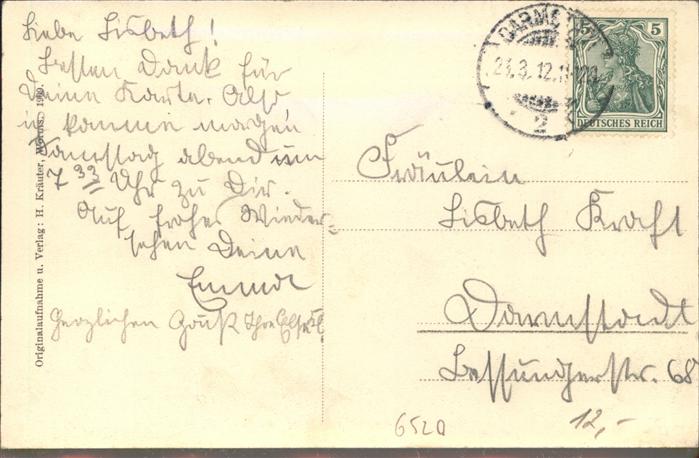 Liebe Lisbeth!
Besten Dank für
Deine Karte. Also
ich komme morgen
Samstag abend um
7 33 Uhr zu Dir.
Auf frohes Wieder-
sehen Deine
Emma
Herzlichen Gruß Ihre
Originalaufnahme u. Verlag: H. Kräuter, Worms.
DARMSTADT
5 5
DEUTSCHES REICH
2
Fräulein
Lisbeth Kraft
Darmstadt
Bessungerstr. 68
6520
12,-